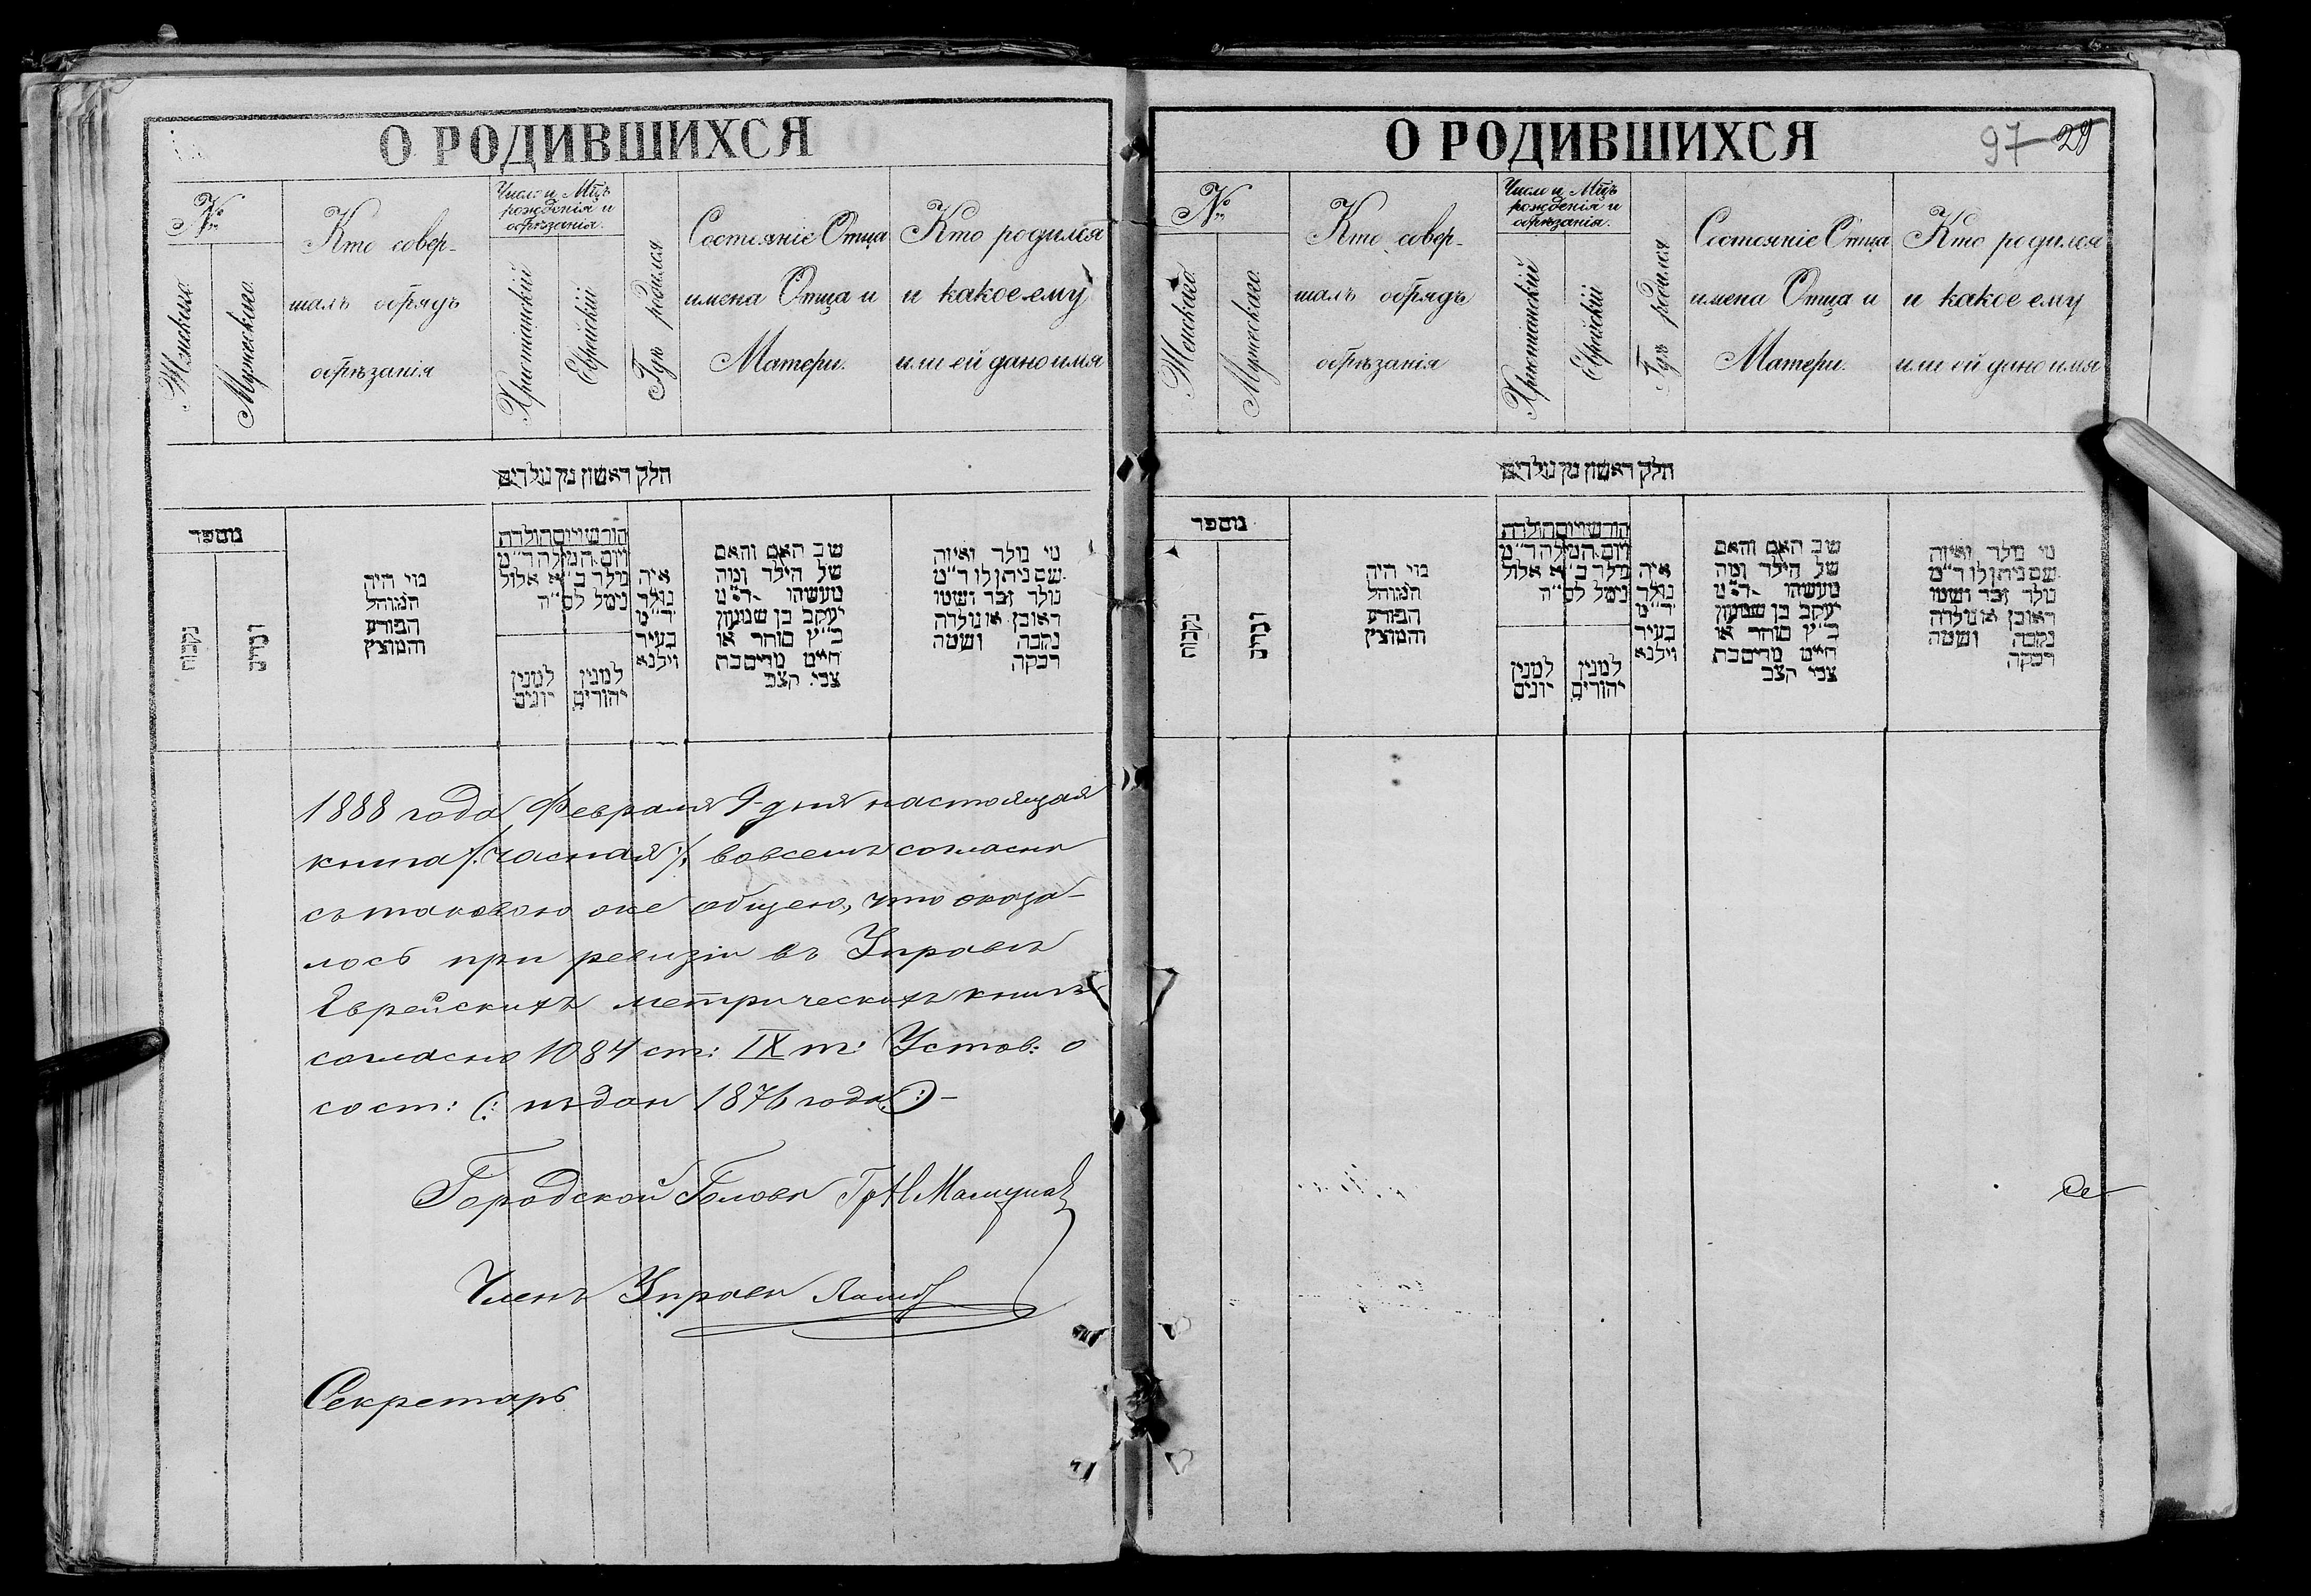 О РОДИВШИХСЯ
№
Женскаго
Мужескаго
Кто совер-
шалъ обрядъ
обрѣзанія
Число и Мцъ
рожденія и
обрѣзанія.
Христіанскій
Еврейскій
Гдѣ родился
Состояніе Отца
имена Отца и
Матери.
Кто родился
и какое ему
или ей дано имя
חלק ראשון מן נולדים
מספר
נקבות
זכרים
מי היה
המוהל
הפורע
והמוצץ
חודש ויום הולדת
ויום המילה ד״מ
נולד ב״א אלול
נימל לס״ה
למנין
יונים
למנין
יהודים
איה
נולד
ד״מ
בעיר
ווילנא
שב האם והאם
של הילד ומה
מעשהו ד״מ
יעקב בן שמעון
כ״ץ סוחר או
חייט מרים בת
צבי קצב
מי נולד ואיזה
שם ניתן לו ד״מ
נולד זכר ושמו
ראובן או נולדה
נקבה ושמה
רבקה
1888 года Февраля 9 дня настоящая
книга /:часная:/ вовсемъ согласна
съ таковою же общею, что оказа-
лось при ревизіи въ Управѣ
Еврейскихъ метрическихъ книгъ
согласно 1084 ст: IX т: Устав: о
сост: (: издан 1876 года:) -
Городской Голова
Членъ Управы
Секретарь
О РОДИВШИХСЯ
97 29
№
Женскаго
Мужескаго
Кто совер-
шалъ обрядъ
обрѣзанія
Число и Мцъ
рожденія и
обрѣзанія.
Христіанскій
Еврейскій
Гдѣ родился
Состояніе Отца
имена Отца и
Матери.
Кто родился
и какое ему
или ей дано имя
חלק ראשון מן נולדים
מספר
נקבות
זכרים
מי היה
המוהל
הפורע
והמוצץ
חודש ויום הולדת
ויום המילה ד״מ
נולד ב״א אלול
נימל לס״ה
למנין
יונים
למנין
יהודים
איה
נולד
ד״מ
בעיר
ווילנא
שב האם והאם
של הילד ומה
מעשהו ד״מ
יעקב בן שמעון
כ״ץ סוחר או
חייט מרים בת
צבי קצב
מי נולד ואיזה
שם ניתן לו ד״מ
נולד זכר ושמו
ראובן או נולדה
נקבה ושמה
רבקה